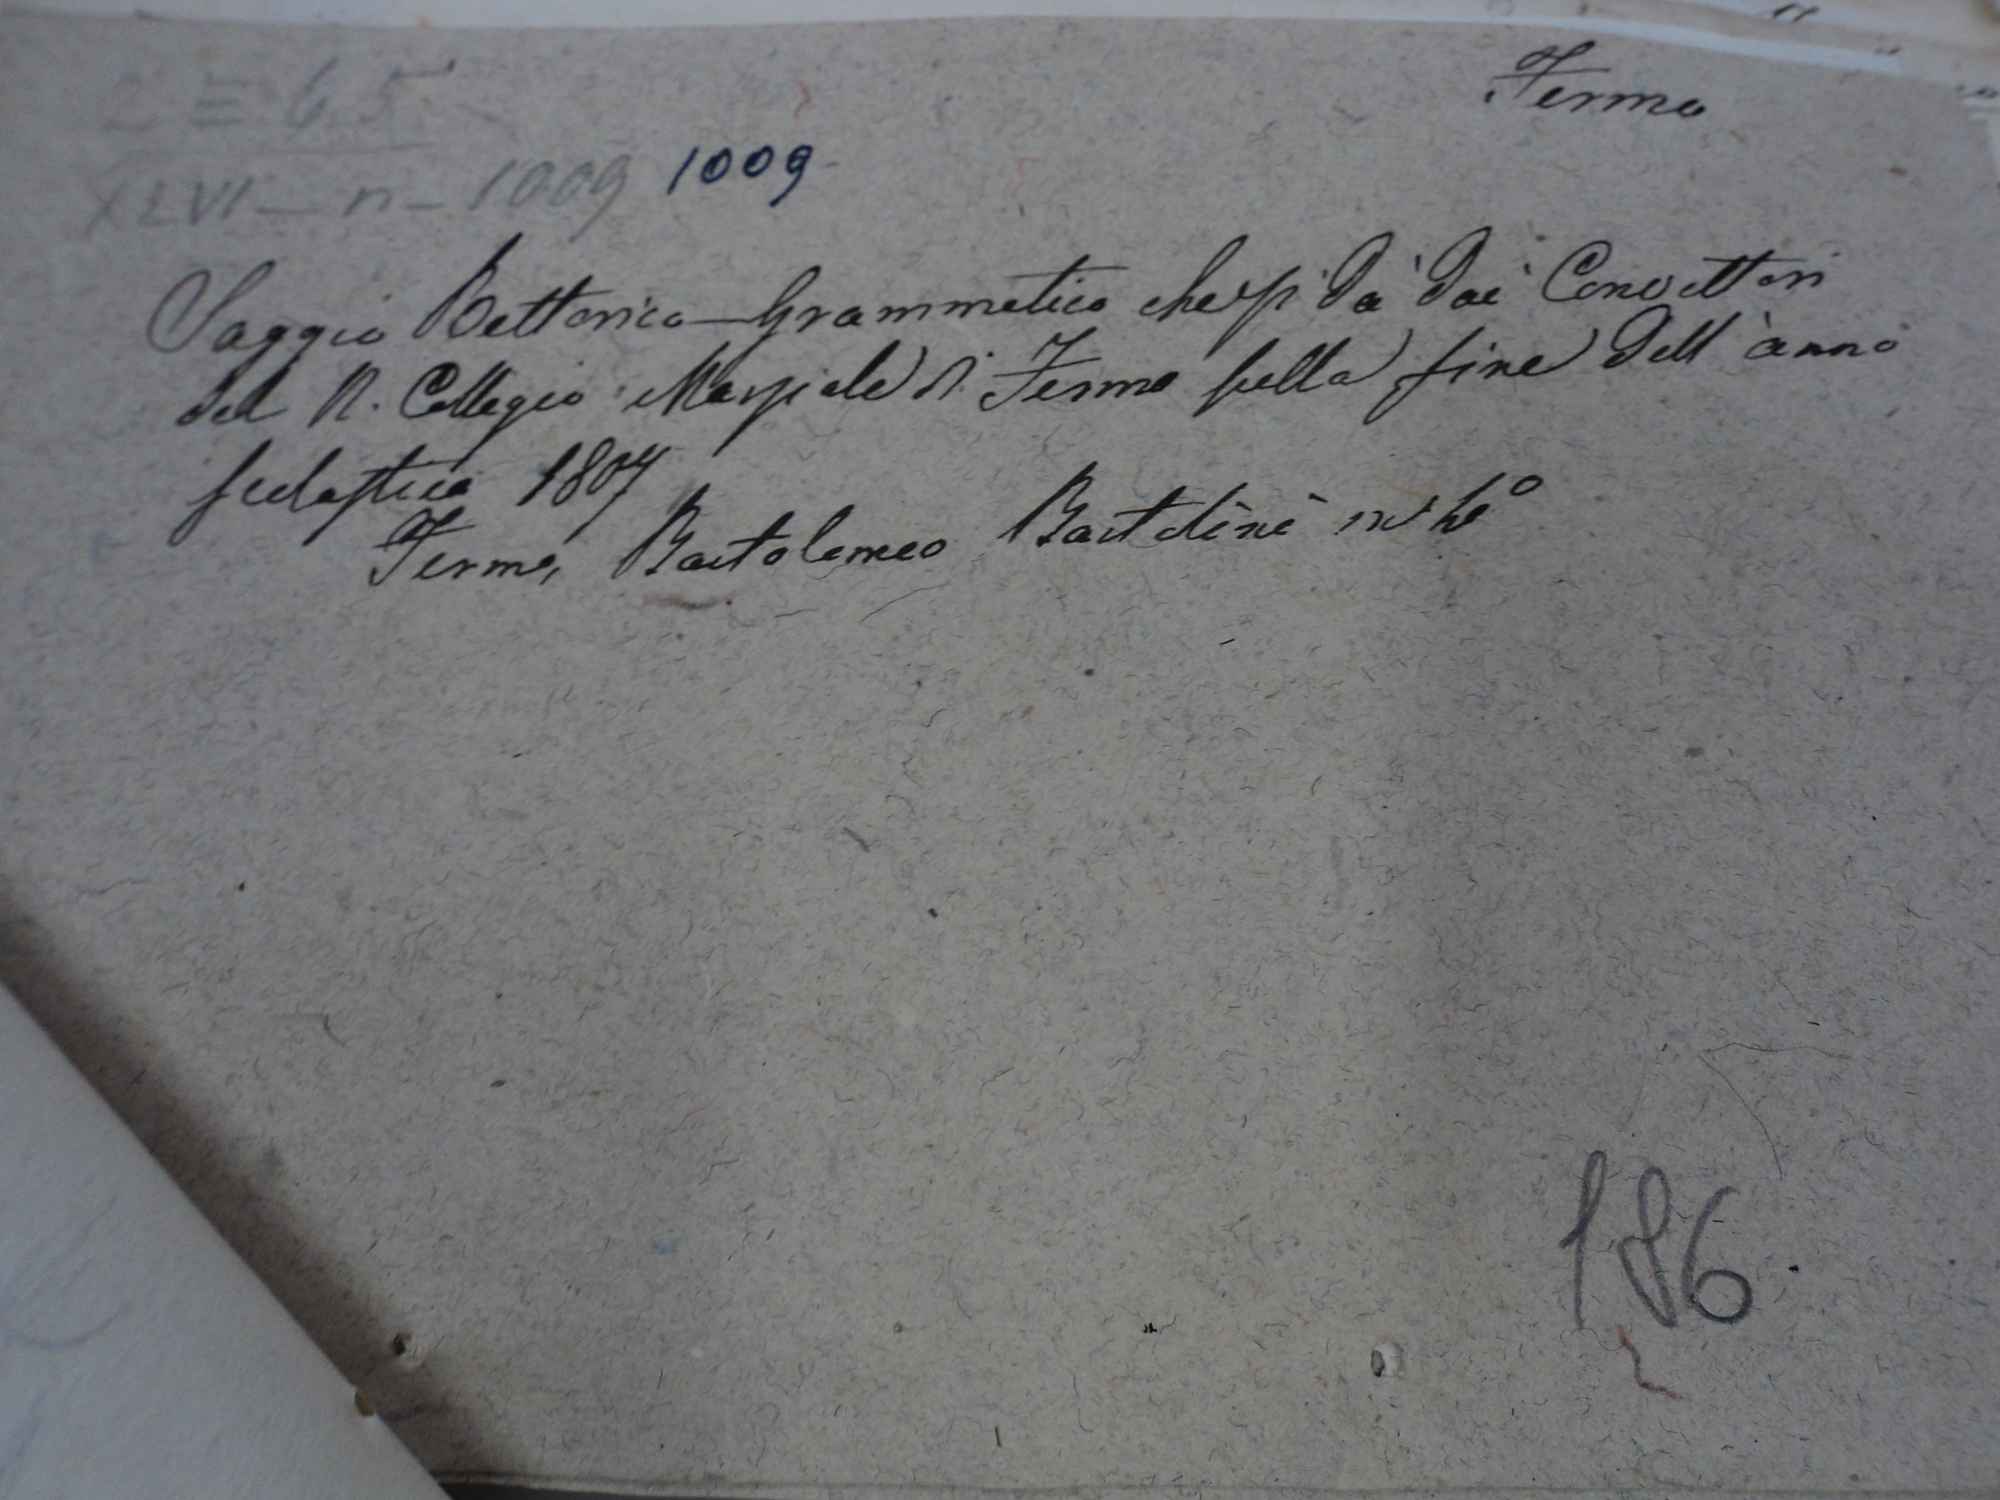 Fermo
2 = 65
XLVI - n - 1009 1009
Saggio Rettorico-Grammatico che si dà dai Convittori
del R. Collegio Marziale di Fermo sulla fine dell'anno
scolastico 1807
Fermo, Bartolomeo Bartolini in 4°
186